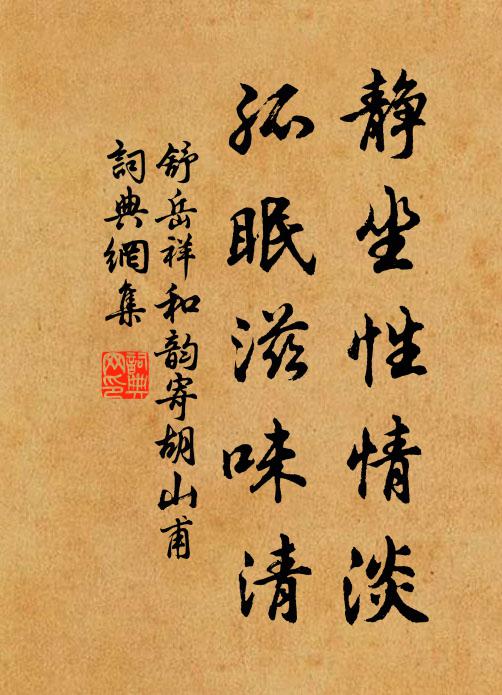 静坐性情淡
孤眠滋味清
舒岳祥和韵寄胡山甫
詞典網集
詞典网印